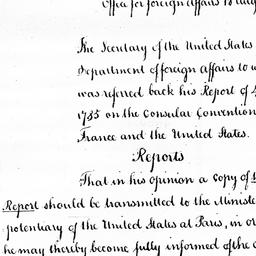 Office for foreign Affairs 18
The Secretary of the United States
Department of foreign Affairs to w
was referred back his Report of
1785 on the Consular Convention
France and the United States.
Reports
That in his opinion a Copy of
Report should be transmitted to the Ministe
potentiary of the United States at Paris, in or
he may thereby become fully informed of the